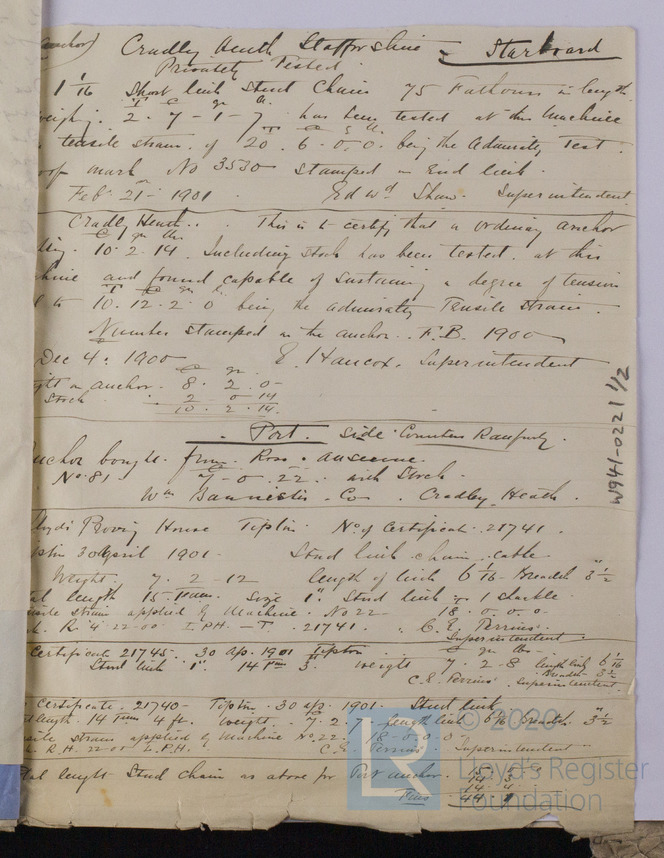 anchor) Cradley Heath Staffordshire - Starboard
Privately Tested
1 1/16 Short link Stud Chain 75 Fathoms in length
T C qr lb
weighing 2 - 7 - 1 - 7 has been tested at this Machine
T C q lb
tensile strain of 20 . 6 . 0 . 0 . being the Admiralty Test .
oof mark No 3530 Stamped on End link .
Feb 21 - 1901 . Edwd Shaw . Superintendent
Cradly Heath . . This is to certify that a ordinary anchor
C qr lbs
10 . 2 . 14 . Including Stock has been tested at this
hine and found capable of sustaining a degree of tension
T C qr l
to 10 . 12 . 2 . 0 being the admiralty Tensile Strain .
Number stamped on the anchor . . F.B. 1900
Dec 4 . 1900 E. Hancox . Superintendent
C qr
ght on anchor . 8 . 2 . 0 -
Stock . 2 0 14
10 . 2 . 14 .
. Port . Side Countess Ranfurly .
nchor bought from Ross .
No. 81 . 7 - 0 . 22 . . with Stock .
Wm Bannister - Co . Cradley Heath .
Proving House Tipton No. of Certificate . 21741 .
pton 30 April 1901 . Stud link chain cable
Weight . 7 . 2 - 12 length of link 6 1/16 Breadth 3 1/2"
al length 15 Size 1" Stud link 1 Shackle
sile strain applied by Machine . No 22 - 18 . 0 . 0 . 0 -
. R. 4 . 22 00 . L.P.H. - T . 21741 . C. E. Perrins .
Superintendent .
C qr lbs
Certificate 21745 . . 30 Ap . 1901 Tipton
Stud link 1" . 14 3 . weight 7 . 2 - 8 length link 6 1/16
Breadth 3 1/2
C.E. Perrins . Superintendent .
Certificate . 21740 - Tipton . 30 ap . 1901 . Stud link
length . 14 4 ft . weight . 7 . 2 . 7 length link 6 1/16 breadth . 3 1/2
sile strain applied by Machine No. 22 . 18 - 0 . 0 . 0
. R.H. 22 00 L.P.H. C.E. Perrins . Superintendent
tal length Stud Chain as above for Port anchor .
W941-0221 1/2
© 2020
LR
Lloyd's Register
Foundation